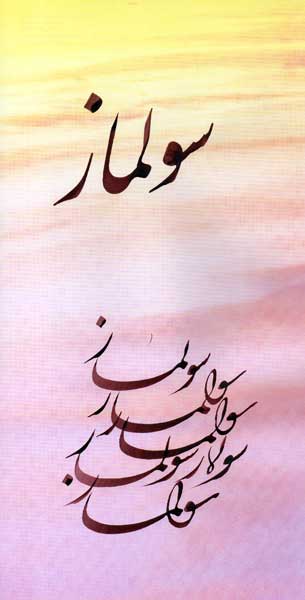 سولماز
سولماز
سولماز
سولماز
سولماز
سولماز
سولماز